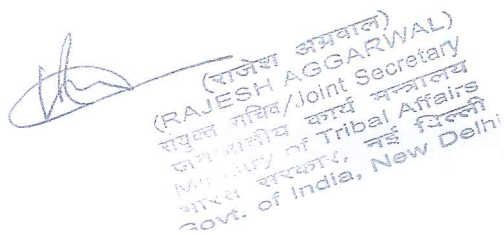 (राजेश अग्रवाल)
(RAJESH AGGARWAL)
संयुक्त सचिव/Joint Secretary
जनजातीय कार्य मन्त्रालय
Ministry of Tribal Affairs
भारत सरकार, नई दिल्ली
Govt. of India, New Delhi